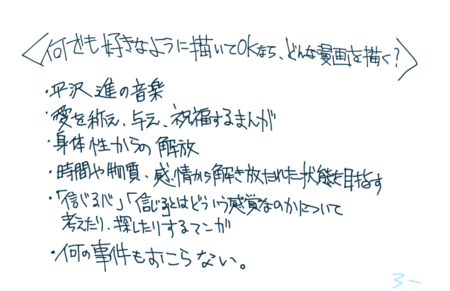 〈何でも好きなように描いてOKなら、どんな漫画を描く?〉
・平沢進の音楽
・愛を称え、与え、祝福するまんが
・身体性からの解放
・時間や物質、感情から解き放たれた状態を目指す
・「信じる心」「信じる」とはどういう感覚なのかについて
考えたり、探したりするマンガ
・何の事件もおこらない。